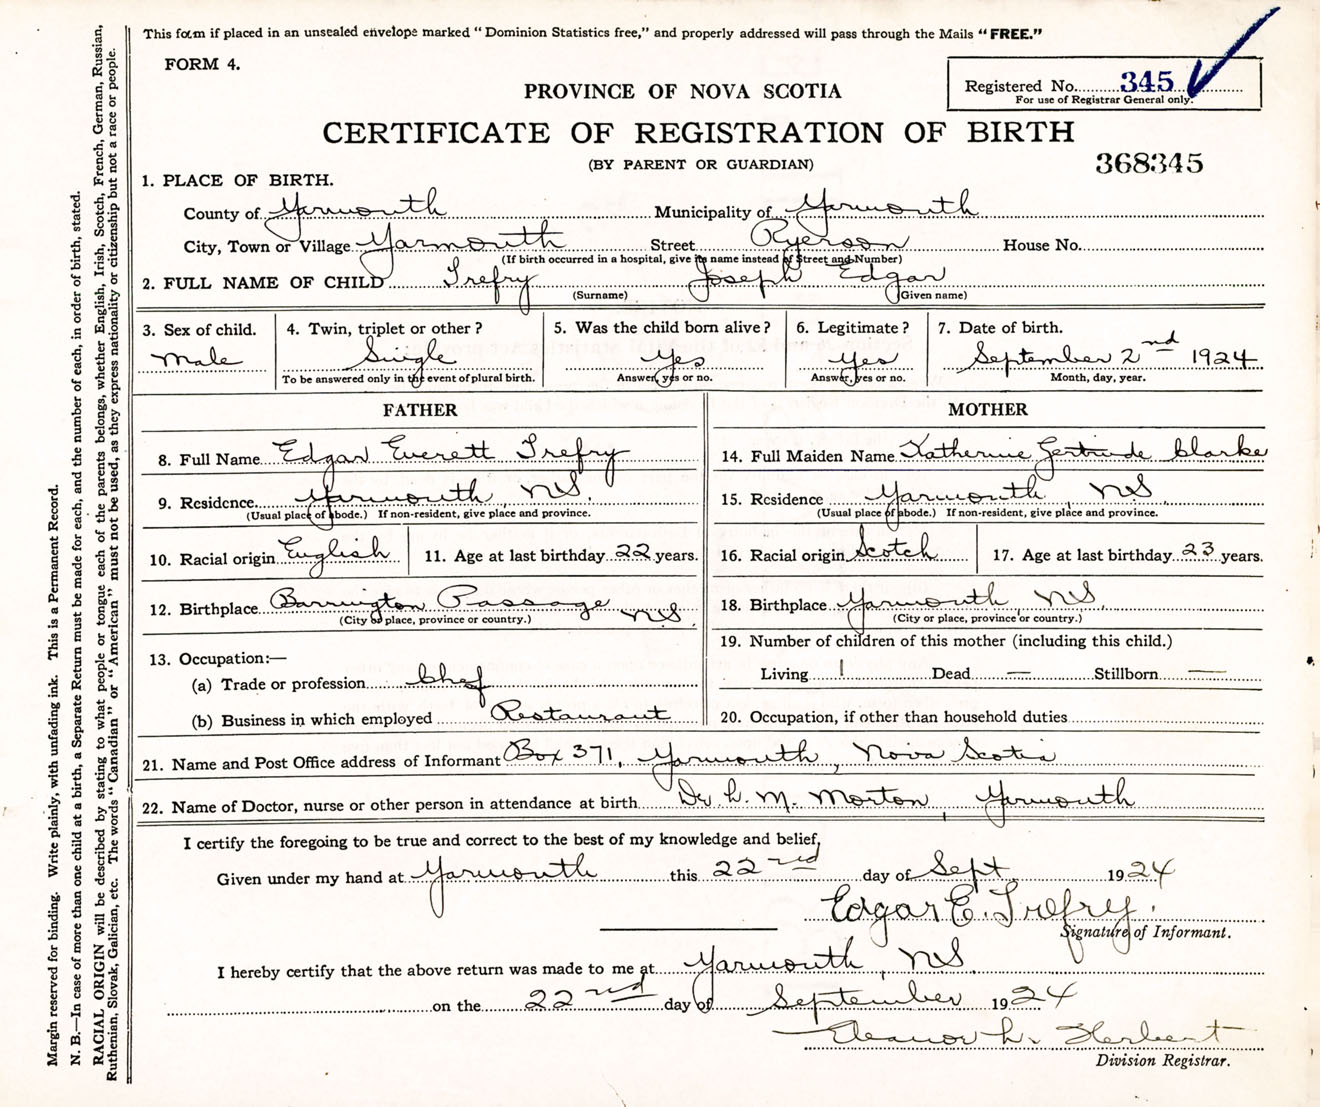 This form if placed in an unsealed envelope marked “Dominion Statistics free,” and properly addressed will pass through the Mails “FREE.”
FORM 4.
Registered No. 345
For use of Registrar General only.
PROVINCE OF NOVA SCOTIA
CERTIFICATE OF REGISTRATION OF BIRTH
(BY PARENT OR GUARDIAN)
368345
1. PLACE OF BIRTH.
County of Yarmouth Municipality of Yarmouth
City, Town or Village Yarmouth Street Ryerson House No.
(If birth occurred in a hospital, give its name instead of Street and Number)
2. FULL NAME OF CHILD Trefry Joseph Edgar
(Surname) (Given name)
3. Sex of child. 4. Twin, triplet or other? 5. Was the child born alive? 6. Legitimate? 7. Date of birth.
Male Single Yes Yes September 2nd 1924
To be answered only in the event of plural birth. Answer, yes or no. Answer, yes or no. Month, day, year.
FATHER MOTHER
8. Full Name Edgar Everett Trefry 14. Full Maiden Name Katherine Gertrude Clarke
9. Residence Yarmouth NS. 15. Residence Yarmouth, NS
(Usual place of abode.) If non-resident, give place and province. (Usual place of abode.) If non-resident, give place and province.
10. Racial origin English 11. Age at last birthday 22 years. 16. Racial origin Scotch 17. Age at last birthday 23 years.
12. Birthplace Barrington Passage NS. 18. Birthplace Yarmouth, NS.
(City or place, province or country.) (City or place, province or country.)
19. Number of children of this mother (including this child.)
13. Occupation:—
(a) Trade or profession Chef Living 1 Dead — Stillborn —
(b) Business in which employed Restaurant 20. Occupation, if other than household duties
21. Name and Post Office address of Informant Box 371, Yarmouth, Nova Scotia
22. Name of Doctor, nurse or other person in attendance at birth Dr L. M. Morton, Yarmouth
I certify the foregoing to be true and correct to the best of my knowledge and belief,
Given under my hand at Yarmouth this 22nd day of Sept 1924
Edgar E. Trefry.
Signature of Informant.
I hereby certify that the above return was made to me at Yarmouth, NS.
on the 22nd day of September 1924
Eleanor L. Herbert
Division Registrar.
Margin reserved for binding. Write plainly, with unfading ink. This is a Permanent Record.
N. B.—In case of more than one child at a birth, a Separate Return must be made for each, and the number of each, in order of birth, stated.
RACIAL ORIGIN will be described by stating to what people or tongue each of the parents belongs, whether English, Irish, Scotch, French, German, Russian,
Ruthenian, Slovak, Galician, etc. The words “Canadian” or “American” must not be used, as they express nationality or citizenship but not a race or people.